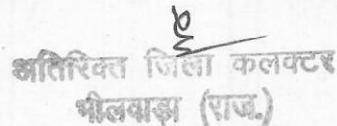 अतिरिक्त जिला कलक्टर
भीलवाड़ा (राज.)